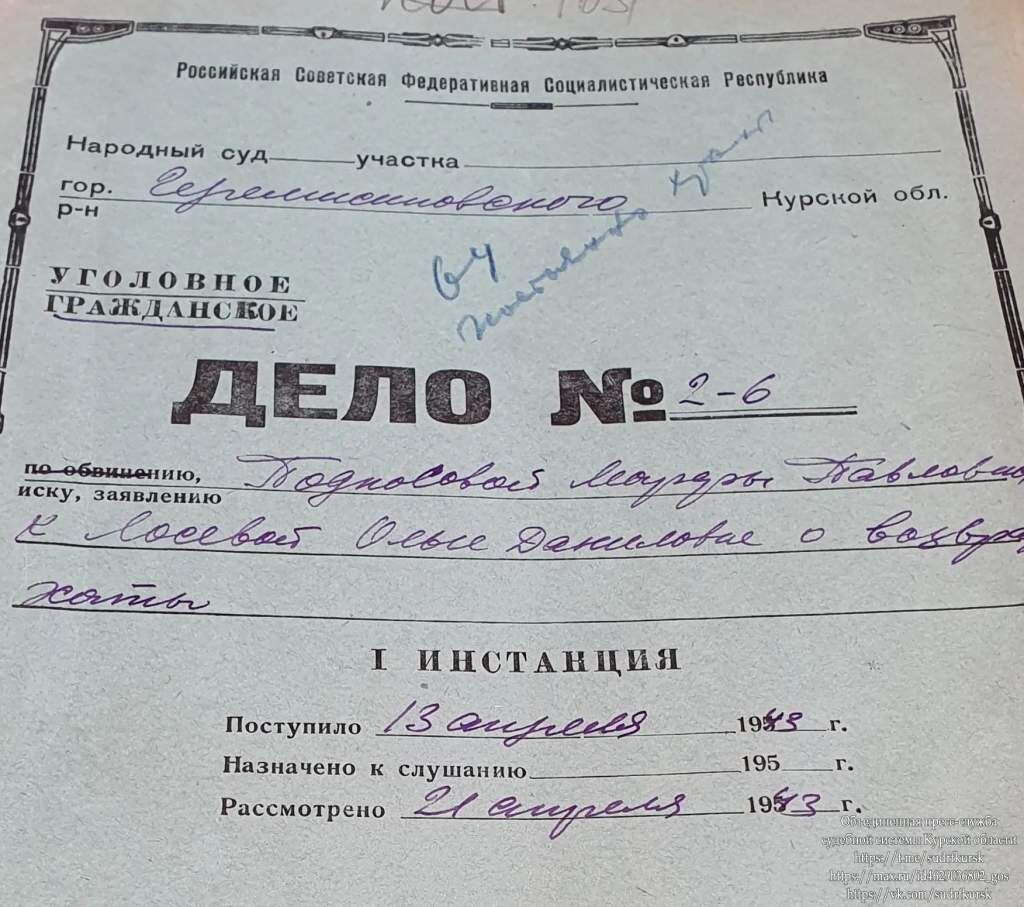 Российская Советская Федеративная Социалистическая Республика
Народный суд участка
гор. Черемисиновского Курской обл.
р-н
64
постоянно хранит
УГОЛОВНОЕ
ГРАЖДАНСКОЕ
ДЕЛО № 2-6
по обвинению, Подколзовой Марфы Павловн
иску, заявлению
к Лосевой Ольге Даниловне о возвра
хаты
I ИНСТАНЦИЯ
Поступило 13 апреля 1943 г.
Назначено к слушанию 195 г.
Рассмотрено 21 апреля 1943 г.
Объединенная пресс-служба
судебной системы Курской области
https://t.me/sudrfkursk
https://max.ru/id4629036802_gos
https://vk.com/sudrfkursk